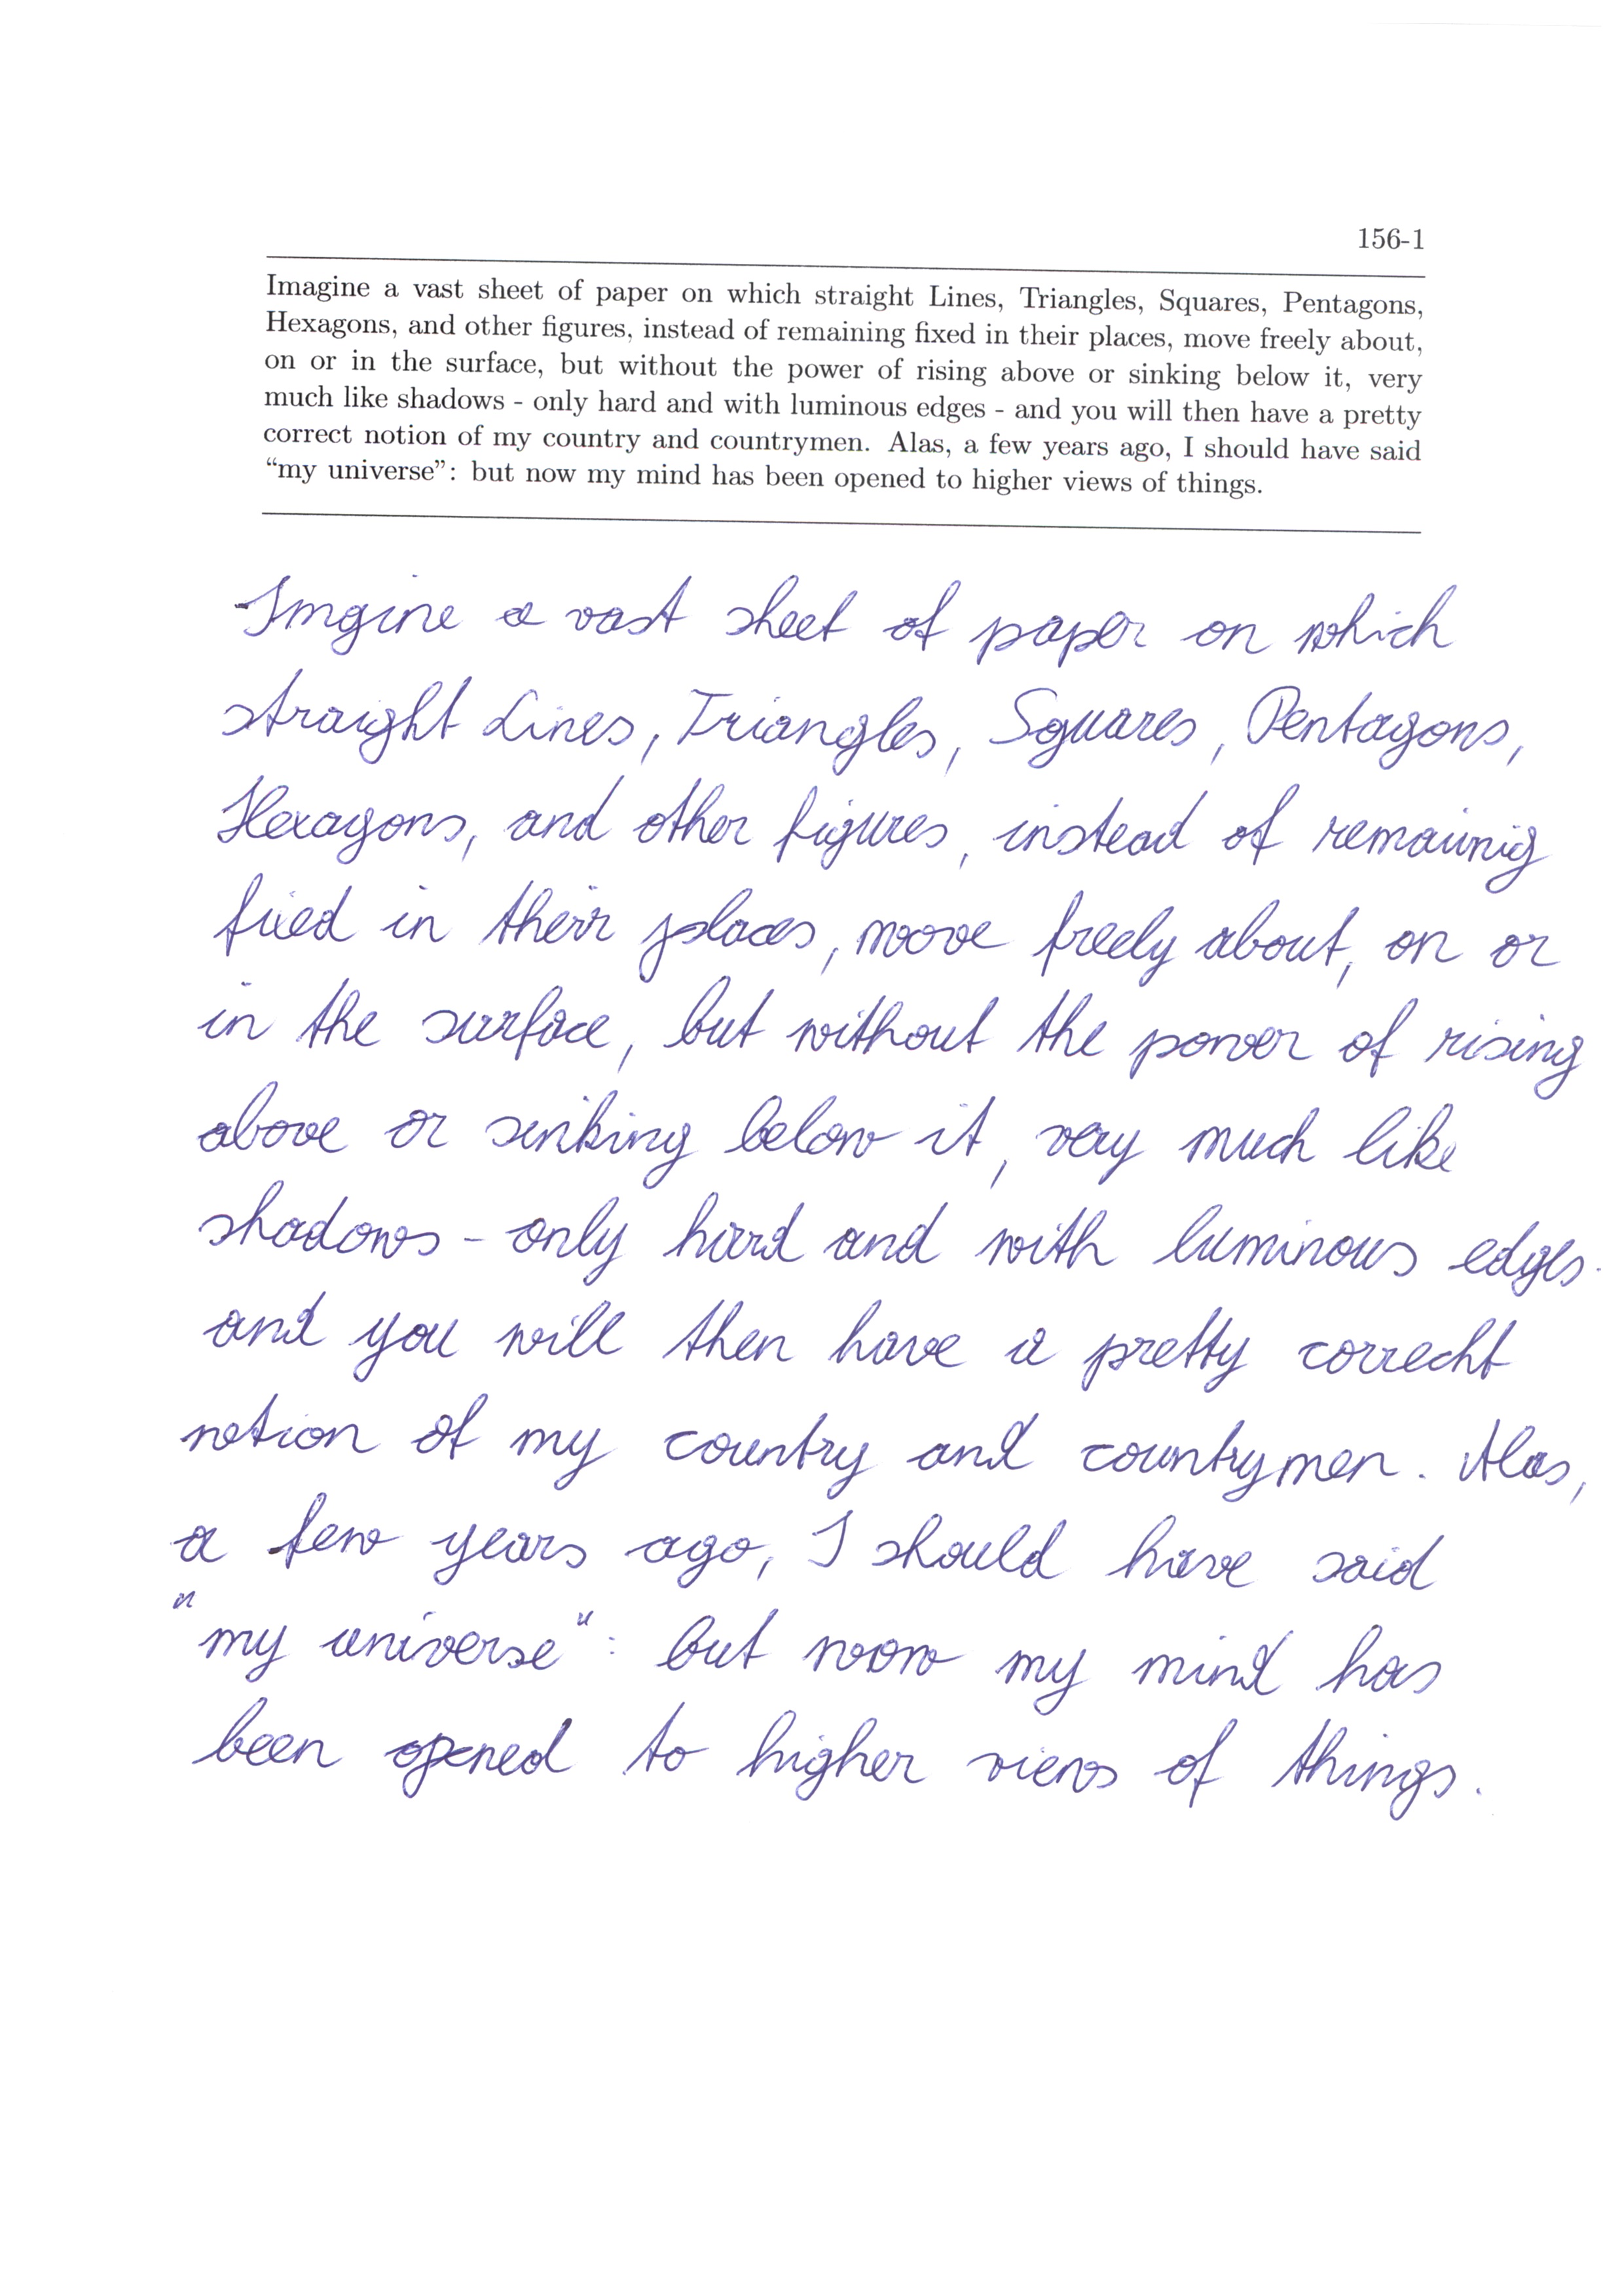 156-1
Imagine a vast sheet of paper on which straight Lines, Triangles, Squares, Pentagons,
Hexagons, and other figures, instead of remaining fixed in their places, move freely about,
on or in the surface, but without the power of rising above or sinking below it, very
much like shadows - only hard and with luminous edges - and you will then have a pretty
correct notion of my country and countrymen. Alas, a few years ago, I should have said
“my universe”: but now my mind has been opened to higher views of things.
Imgine a vast sheet of paper on which
straight Lines, Triangles, Squares, Pentagons,
Hexagons, and other figures, instead of remainig
fixed in their places, moove freely about, on or
in the surface, but without the power of rising
above or sinking below it, very much like
shadows - only hard and with luminous edges -
and you will then have a pretty correcht
notion of my country and countrymen. Alas,
a few years ago, I should have said
"my universe": but now my mind has
been opened to higher views of things.